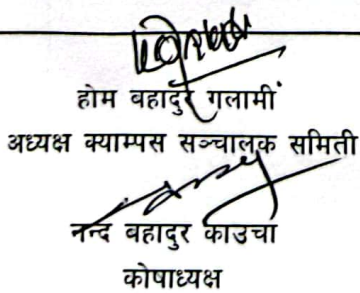 होम बहादुर गलामीं
अध्यक्ष क्याम्पस सञ्चालक समिती
नन्द बहादुर काउचा
कोषाध्यक्ष